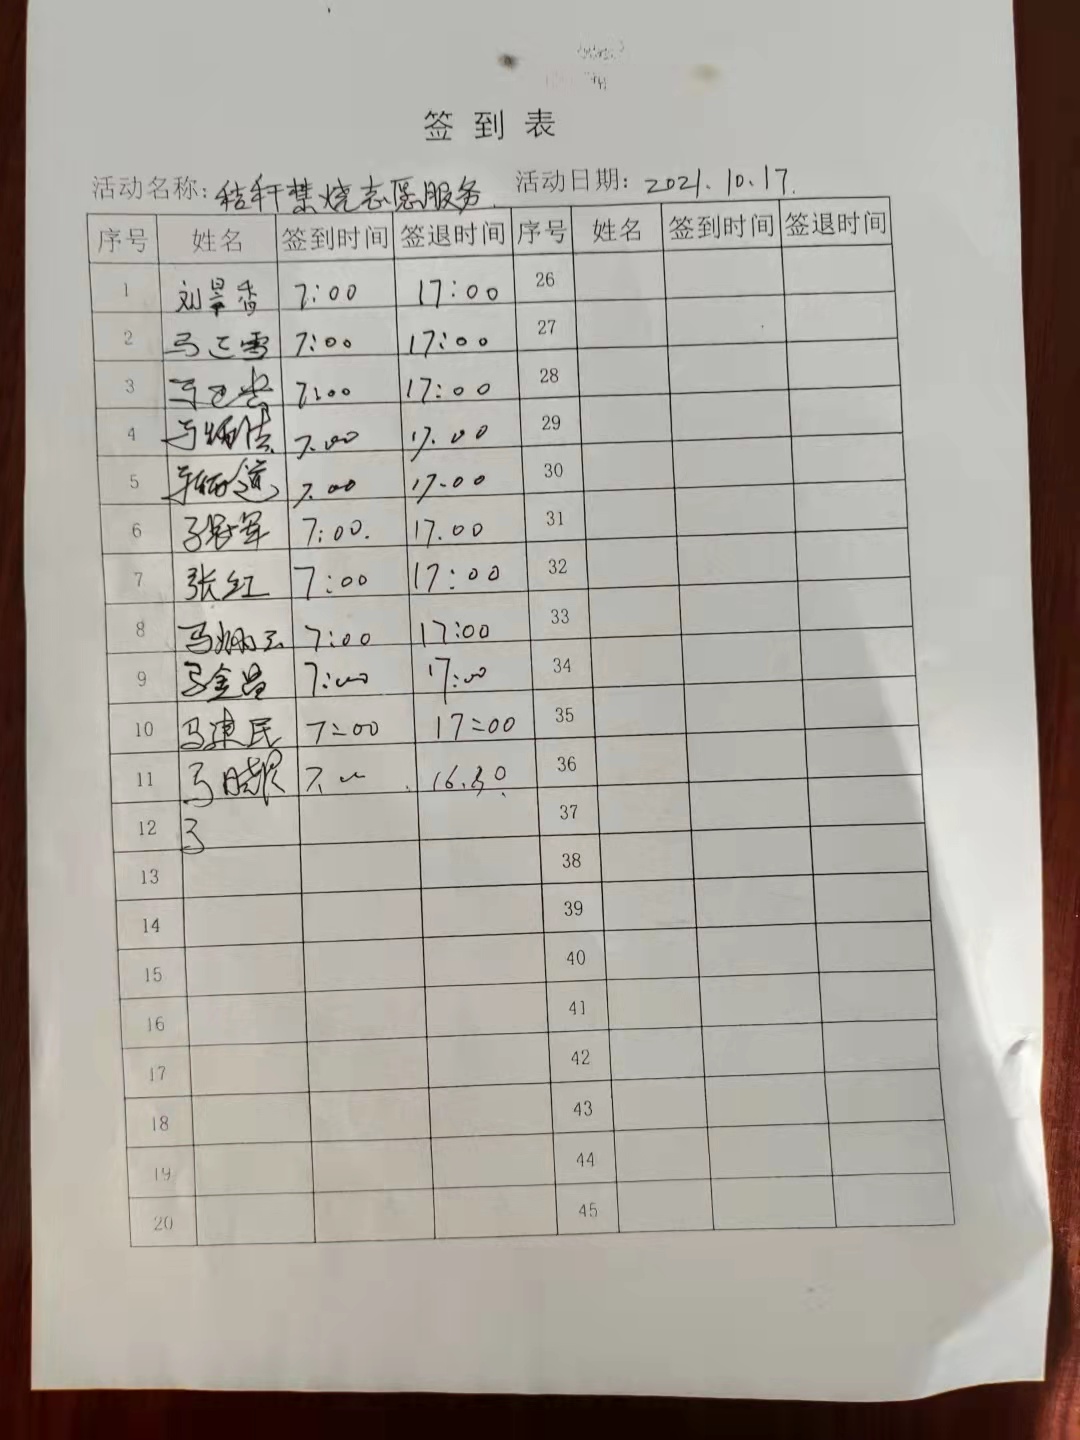 签到表
活动名称：秸秆禁烧志愿服务 活动日期：2021.10.17.
序号 姓名 签到时间 签退时间 序号 姓名 签到时间 签退时间
1 刘 香 7:00 17:00 26
2 马 雪 7:00 17:00 27
3 马 7:00 17:00 28
4 马炳 7.00 17.00 29
5 道 7.00 17.00 30
6 军 7:00. 17.00 31
7 张红 7:00 17:00 32
8 马 7:00 17:00 33
9 马金昌 7:00 17:00 34
10 马建民 7:00 17:00 35
11 马晓 7. 16.30 36
12 37
13 38
14 39
15 40
16 41
17 42
18 43
19 44
20 45